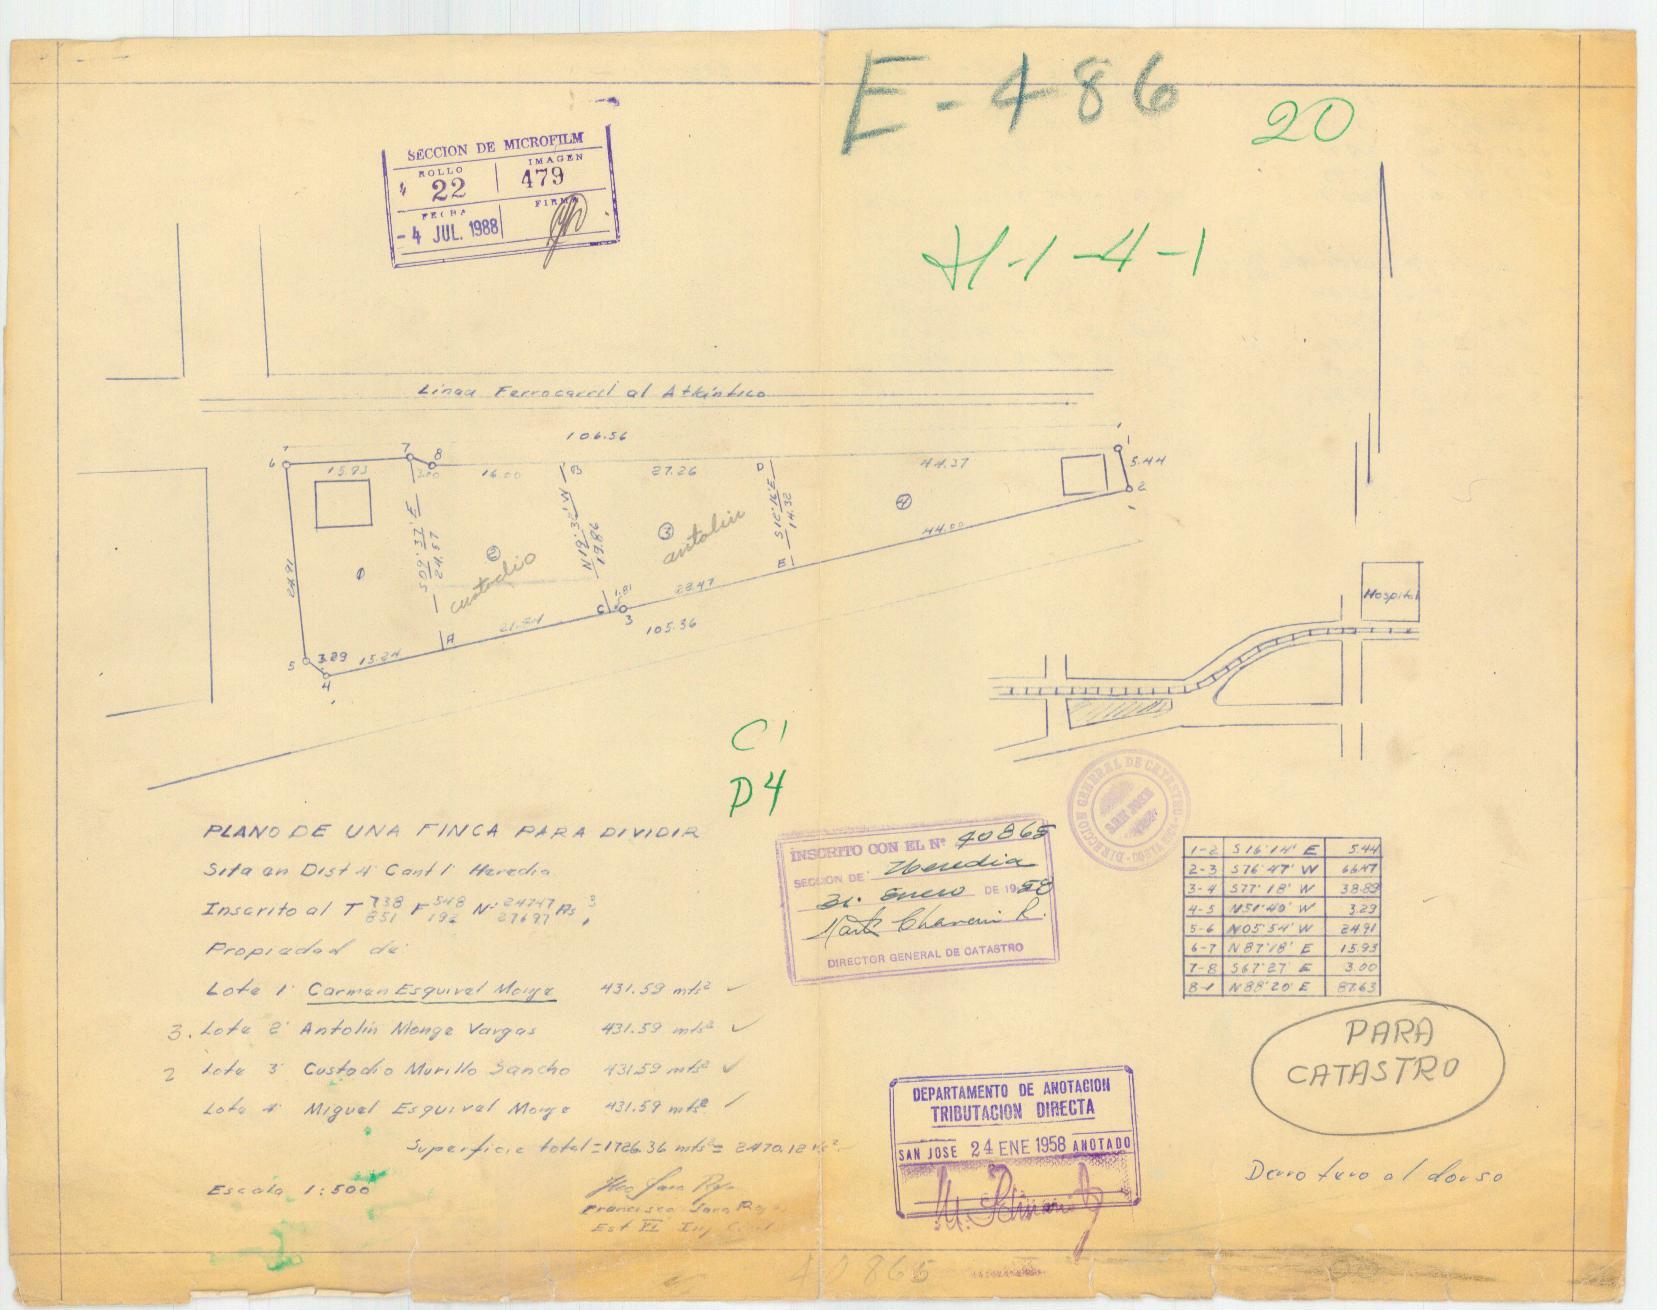 E-486
20
SECCION DE MICROFILM
ROLLO 22
IMAGEN 479
FECHA
FIRMA
- 4 JUL. 1988
H-1-4-1
Línea Ferrocarril al Atlántico
106.56
6
7
8
1
15.93
3.00
16.00
B
27.26
D
44.37
5.44
2
S09°37' E
24.57
N19°32' W
19.86
S12°16' E
14.32
24.91
2
custodio
3
antolin
4
44.00
E
23.47
1.81
C
3
105.36
21.84
A
15.24
5
3.29
4
Hospital
C1
D4
PLANO DE UNA FINCA PARA DIVIDIR
Sita en Dist 4° Cant 1° Heredia
Inscrito al T 738 F 548 N° 24747 As 3
851 192 27697 1
Propiedad de:
Lote 1° Carmen Esquivel Monge 431.59 mts²
3. Lote 2° Antolín Monge Vargas 431.59 mts²
2 Lote 3° Custodio Murillo Sancho 431.59 mts²
Lote 4° Miguel Esquivel Monge 431.59 mts²
Superficie total = 1726.36 mts² = 2470.12 vs²
Escala 1:500
Francisco Jara
Est VI Ing Civil
DIRECCION GENERAL DE CATASTRO
SAN JOSE
INSCRITO CON EL N° 40865
SECCION DE Heredia
31. Enero DE 1958
DIRECTOR GENERAL DE CATASTRO
1-2 S16°14' E 5.44
2-3 S76°47' W 66.47
3-4 S77°18' W 38.89
4-5 N51°40' W 3.29
5-6 N05°54' W 24.91
6-7 N87°18' E 15.93
7-8 S67°27' E 3.00
8-1 N88°20' E 87.63
PARA
CATASTRO
DEPARTAMENTO DE ANOTACION
TRIBUTACION DIRECTA
SAN JOSE 24 ENE 1958 ANOTADO
Derrotero al dorso
40865